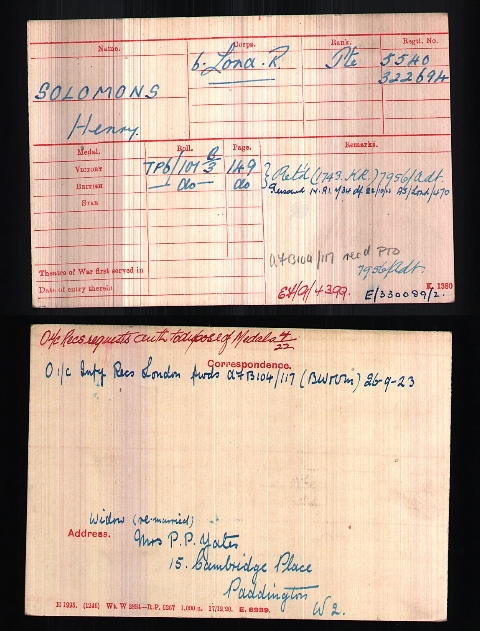 Name. Corps. Rank. Regtl. No.
SOLOMONS 6. Lond. R Pte 5540
322694
Henry.
Medal. Roll. Page. Remarks.
VICTORY TP6/101 B3 149 Ret'd (1743. K.R.) 7956/Adt.
BRITISH — do — do
STAR
d/B104/117 rec'd PTO
7956/Adt.
Theatre of War first served in
Date of entry therein
E4/9/4399. E/330089/2. K. 1380
O i/c Recs requests auth to dispose of Medals 4/22
Correspondence.
O i/c Infy Recs London fwds d/B104/117 (BW&Vm) 26-9-23
Widow (re-married)
Address. Mrs P.P. Yates
15. Cambridge Place
Paddington
W 2.
E 1995. (1246) Wt. W 2884—R.P. 6267 1,000 m. 17/12/20. E. 8239.